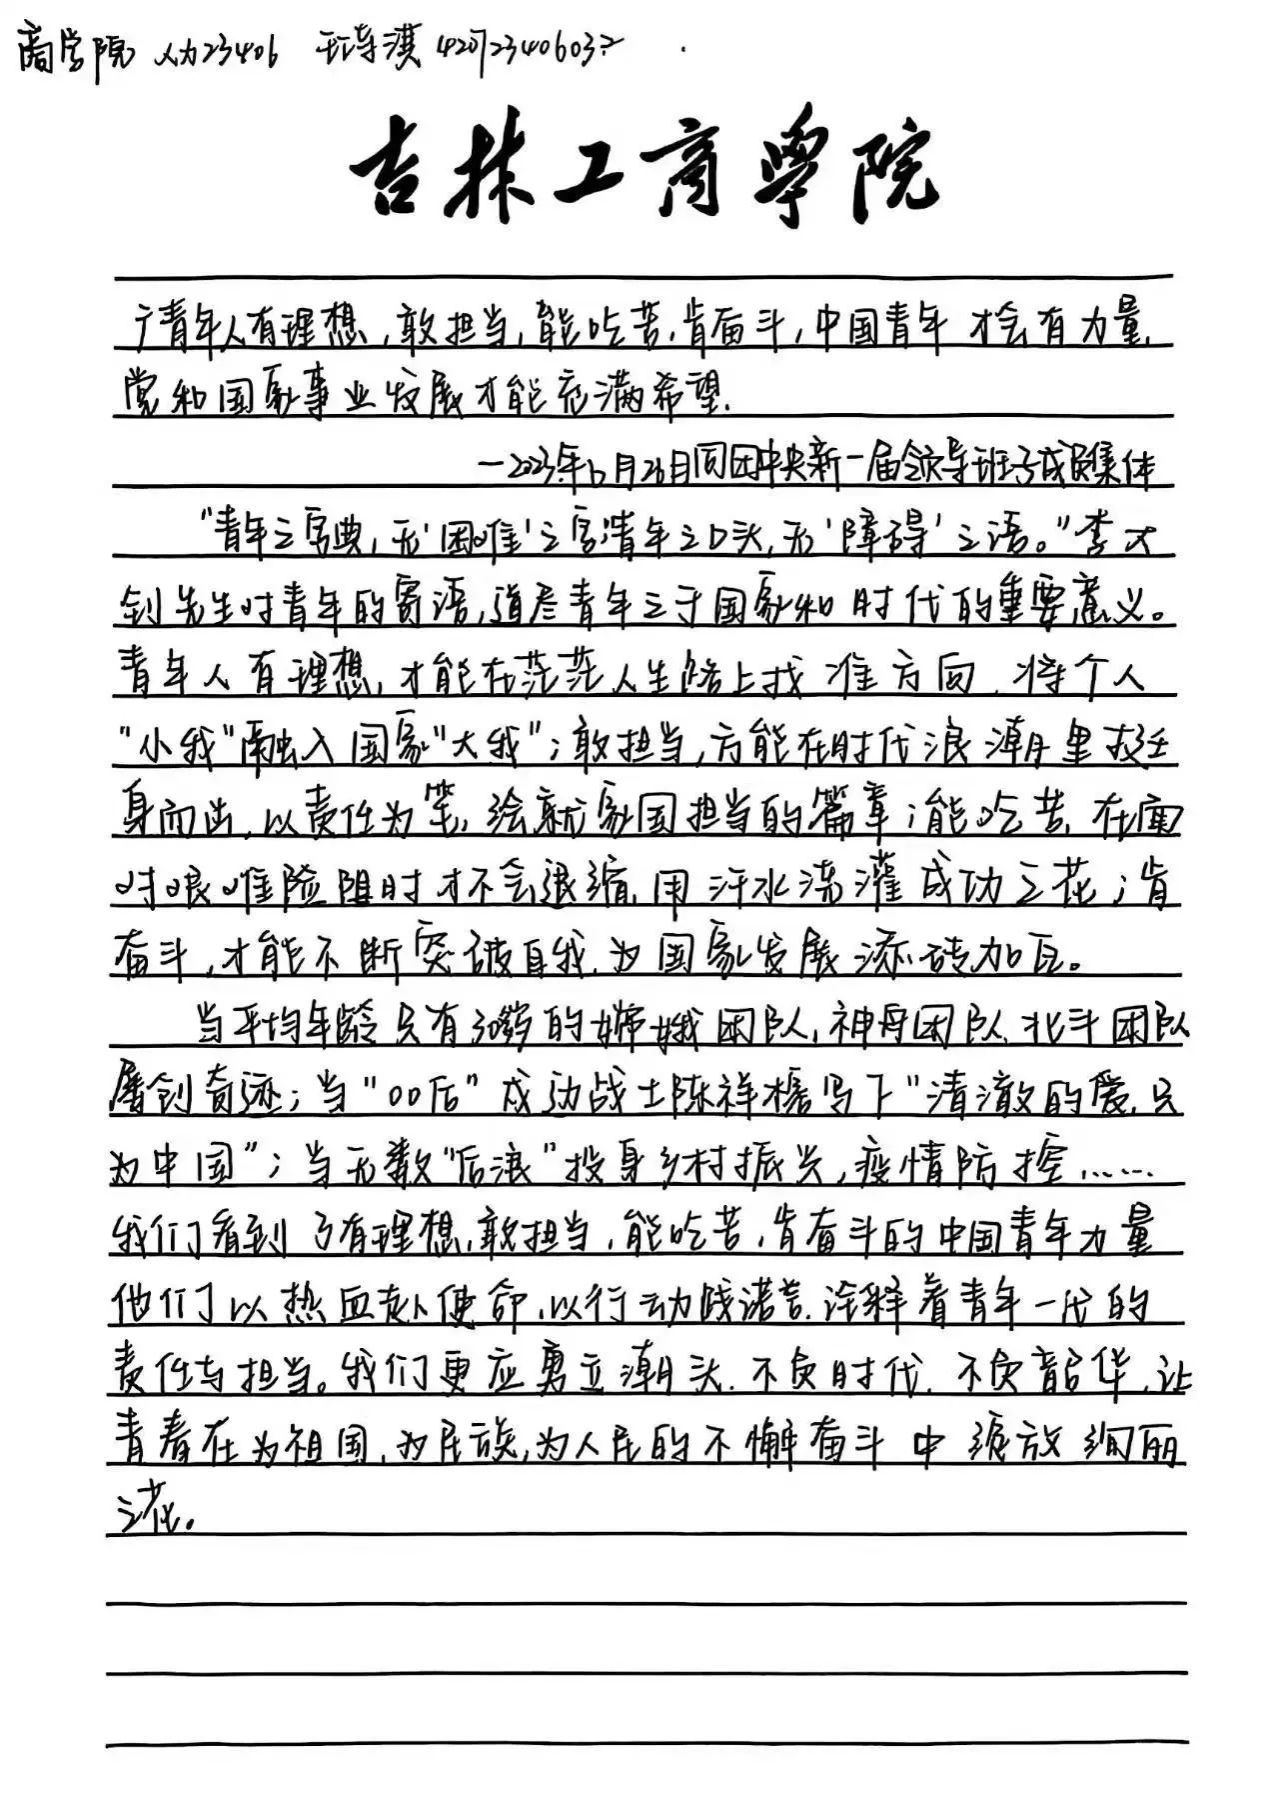 商学院 人力23406
吉林工商學院
广青年人有理想,敢担当,能吃苦,肯奋斗,中国青年才会有力量,
党和国家事业发展才能充满希望.
一2023年6月26日同团中央新一届领导班子成员集体
“青年之字典,无‘困难’之字;青年之口头,无‘障碍’之语。”李大
钊先生对青年的寄语,道尽青年之于国家和时代的重要意义。
青年人有理想,才能在茫茫人生路上找准方向,将个人
“小我”融入国家“大我”;敢担当,方能在时代浪潮里挺
身而出,以责任为笔,绘就家国担当的篇章;能吃苦,在面
对艰难险阻时才不会退缩,用汗水浇灌成功之花;肯
奋斗,才能不断突破自我,为国家发展添砖加瓦。
当平均年龄只有30岁的嫦娥团队,神舟团队,北斗团队
屡创奇迹;当“00后”戍边战士陈祥榕写下“清澈的爱,只
为中国”;当无数“后浪”投身乡村振兴,疫情防控......
我们看到了有理想,敢担当,能吃苦,肯奋斗的中国青年力量
他们以热血赴使命,以行动践诺言,诠释着青年一代的
责任与担当。我们更应勇立潮头,不负时代,不负韶华,让
青春在为祖国,为民族,为人民的不懈奋斗中绽放绚丽
之花。